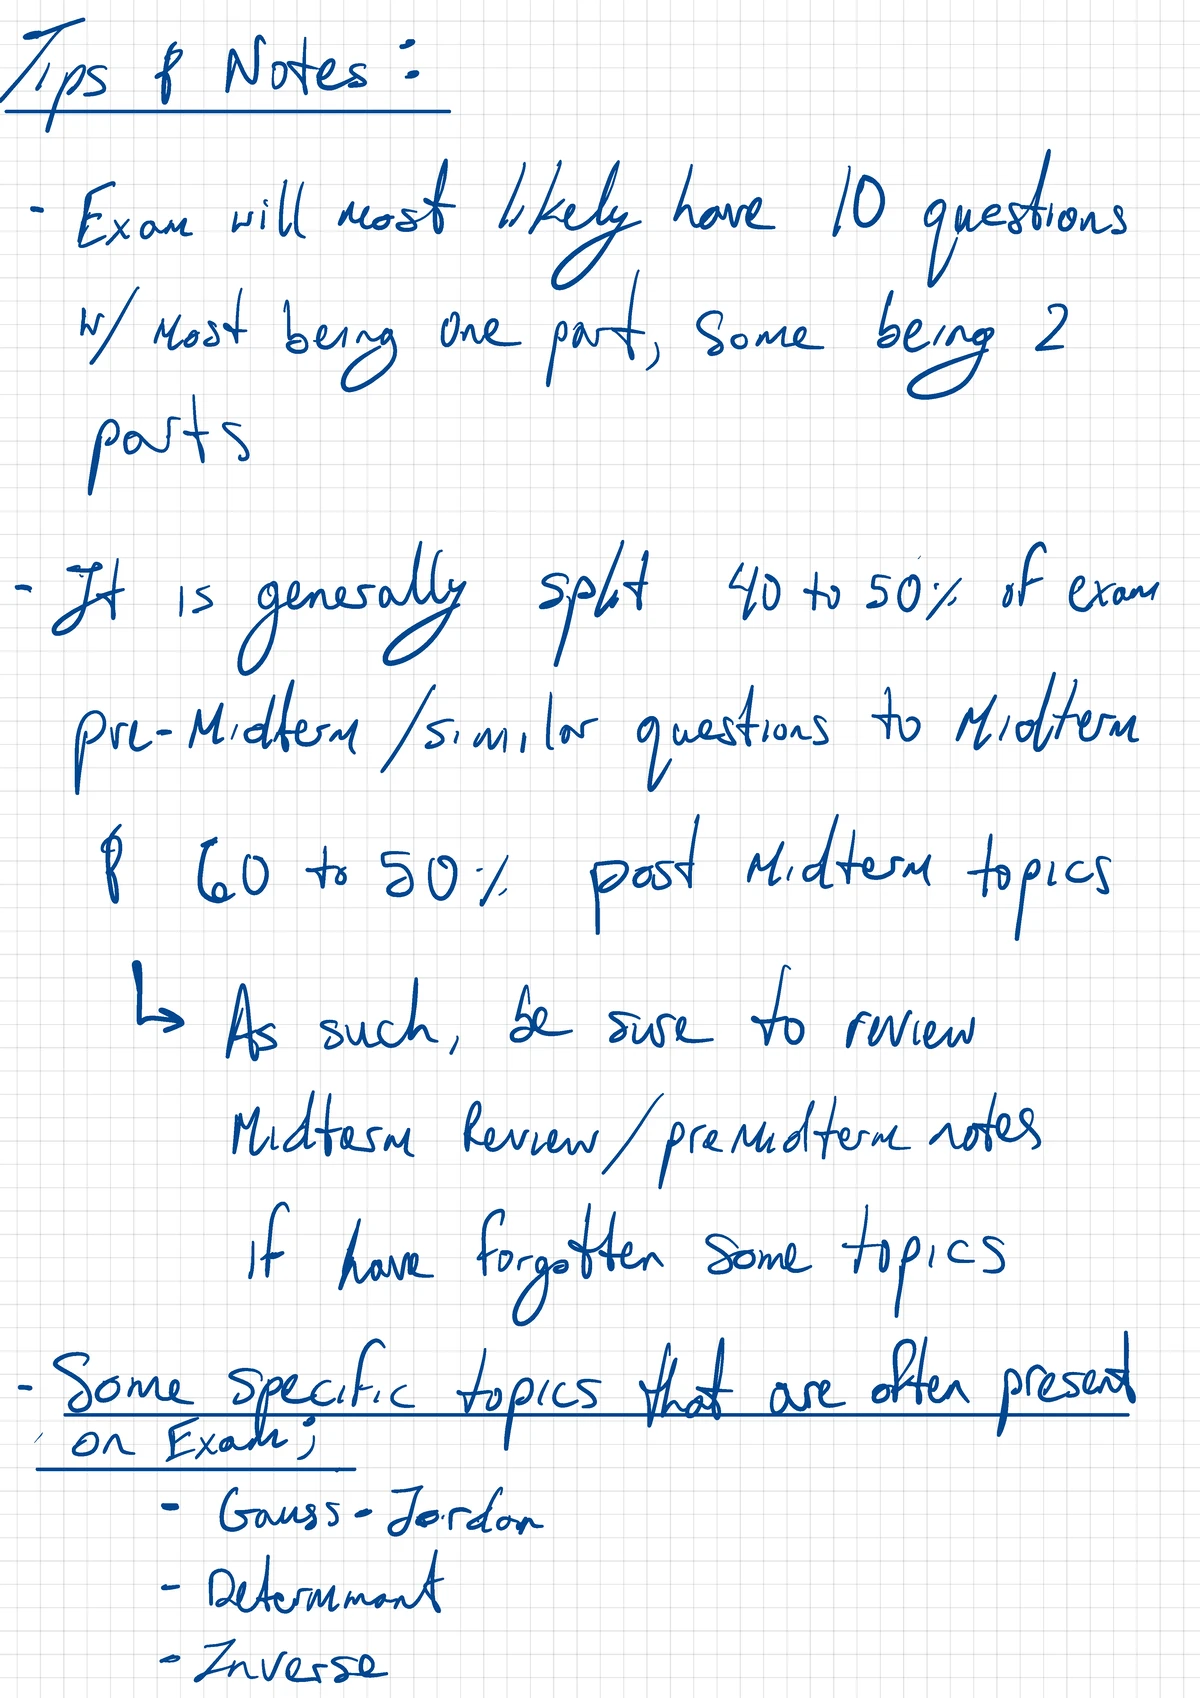 Tips & Notes:
- Exam will most likely have 10 questions
w/ most being one part, some being 2
parts
- It is generally split 40 to 50% of exam
pre-Midterm/similar questions to Midterm
& 60 to 50% post Midterm topics
↳ As such, be sure to review
Midterm Review/premidterm notes
if have forgotten some topics
- Some specific topics that are often present
on Exam;
- Gauss-Jordan
- Determinant
- Inverse